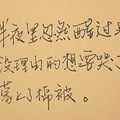 半夜里忽然醒过来
没理由的想要哭了
蒙上棉被。